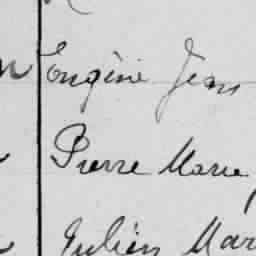 Eugène Jean
Pierre Marie
Julien Mar